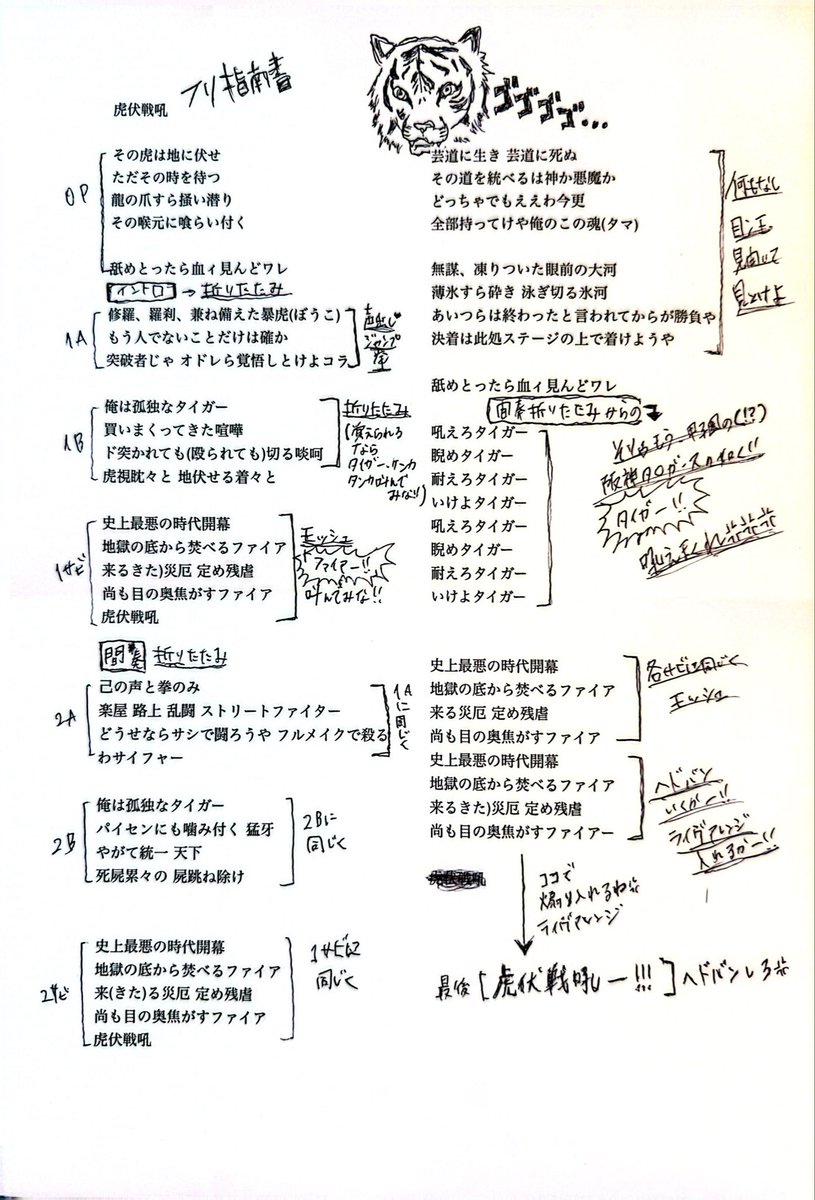 虎伏戦吼
フリ指南書
ゴゴゴゴ...
OP
その虎は地に伏せ
ただその時を待つ
龍の爪すら掻い潜り
その喉元に喰らい付く
舐めとったら血ィ見んどワレ
イントロ → 折りたたみ
1A
修羅、羅刹、兼ね備えた暴虎(ぼうこ)
もう人でないことだけは確か
突破者じゃ オドレら覚悟しとけよコラ
声出し
ジャンプ
拳
1B
俺は孤独なタイガー
買いまくってきた喧嘩
ド突かれても(殴られても)切る啖呵
虎視眈々と 地伏せる着々と
折りたたみ
(覚えられる
なら
タイガー、ケンカ
タンカ叫んで
みな!!)
1サビ
史上最悪の時代開幕
地獄の底から焚べるファイア
来るきた)災厄 定め残虐
尚も目の奥焦がすファイア
虎伏戦吼
モッシュ
ファイアー!!
叫んでみな!!
間奏 折りたたみ
2A
己の声と拳のみ
楽屋 路上 乱闘 ストリートファイター
どうせならサシで闘ろうや フルメイクで殺る
わサイファー
1Aに同じく
2B
俺は孤独なタイガー
パイセンにも噛み付く 猛牙
やがて統一 天下
死屍累々の 屍跳ね除け
2Bに
同じく
2サビ
史上最悪の時代開幕
地獄の底から焚べるファイア
来(きた)る災厄 定め残虐
尚も目の奥焦がすファイア
虎伏戦吼
1サビに
同じく
芸道に生き 芸道に死ぬ
その道を統べるは神か悪魔か
どっちゃでもええわ今更
全部持ってけや俺のこの魂(タマ)
無謀、凍りついた眼前の大河
薄氷すら砕き 泳ぎ切る氷河
あいつらは終わったと言われてからが勝負や
決着は此処ステージの上で着けようや
何もなし
目ン玉
見開いて
見とけよ
舐めとったら血ィ見んどワレ
間奏折りたたみからの
吼えろタイガー
睨めタイガー
耐えろタイガー
いけよタイガー
吼えろタイガー
睨めタイガー
耐えろタイガー
いけよタイガー
そりゃもう 甲子園の(!?)
阪神タイガースの如く!!
タイガー!!
吼えまくれ
史上最悪の時代開幕
地獄の底から焚べるファイア
来る災厄 定め残虐
尚も目の奥焦がすファイア
各サビに同じく
モッシュ
史上最悪の時代開幕
地獄の底から焚べるファイア
来るきた)災厄 定め残虐
尚も目の奥焦がすファイアー
ヘドバン
いくぞー!!
ライヴアレンジ
入れるぞー!!
ココで
煽り入れるね
ライヴアレンジ
最後[虎伏戦吼ー!!!]ヘドバンしろ